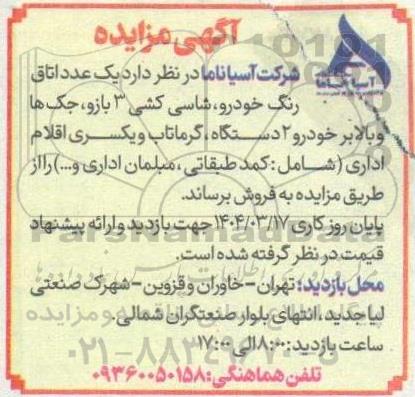 آگهی مزایده
آسیاناما
شرکت آسیاناما در نظر دارد یک عدد اتاق
رنگ خودرو، شاسی کشی ۳ بازو، جک‌ها
و بالابر خودرو ۲ دستگاه، گرماتاب و یکسری اقلام
اداری (شامل: کمد طبقاتی، مبلمان اداری و...) را از
طریق مزایده به فروش برساند.
پایان روز کاری ۱۴۰۴/۰۳/۱۷ جهت بازدید و ارائه پیشنهاد
قیمت در نظر گرفته شده است.
محل بازدید: تهران - خاوران و قزوین - شهرک صنعتی
لیا جدید، انتهای بلوار صنعتگران شمالی.
ساعت بازدید: ۸:۰۰ الی ۱۷:۰۰
تلفن هماهنگی: ۰۹۳۶۰۰۵۰۱۵۸
ParsNamadData